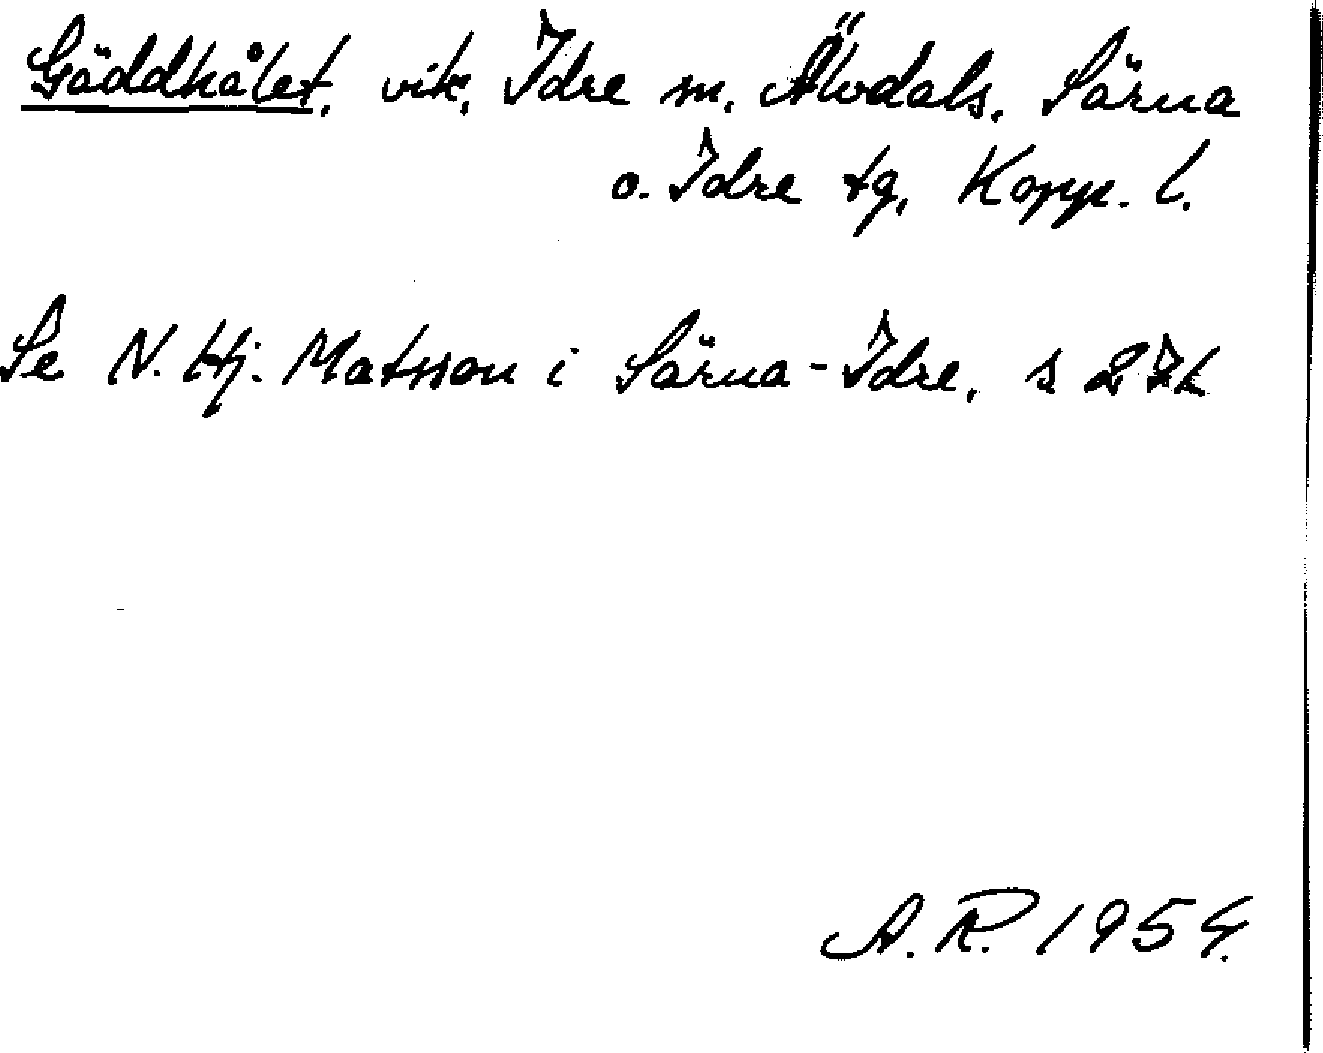 Gäddhålet, vik, Idre sn, Älvdals, Särna
o. Idre tg, Kopp. l.
Se N. Hj. Matsson i Särna-Idre, s
A.R. 1954.